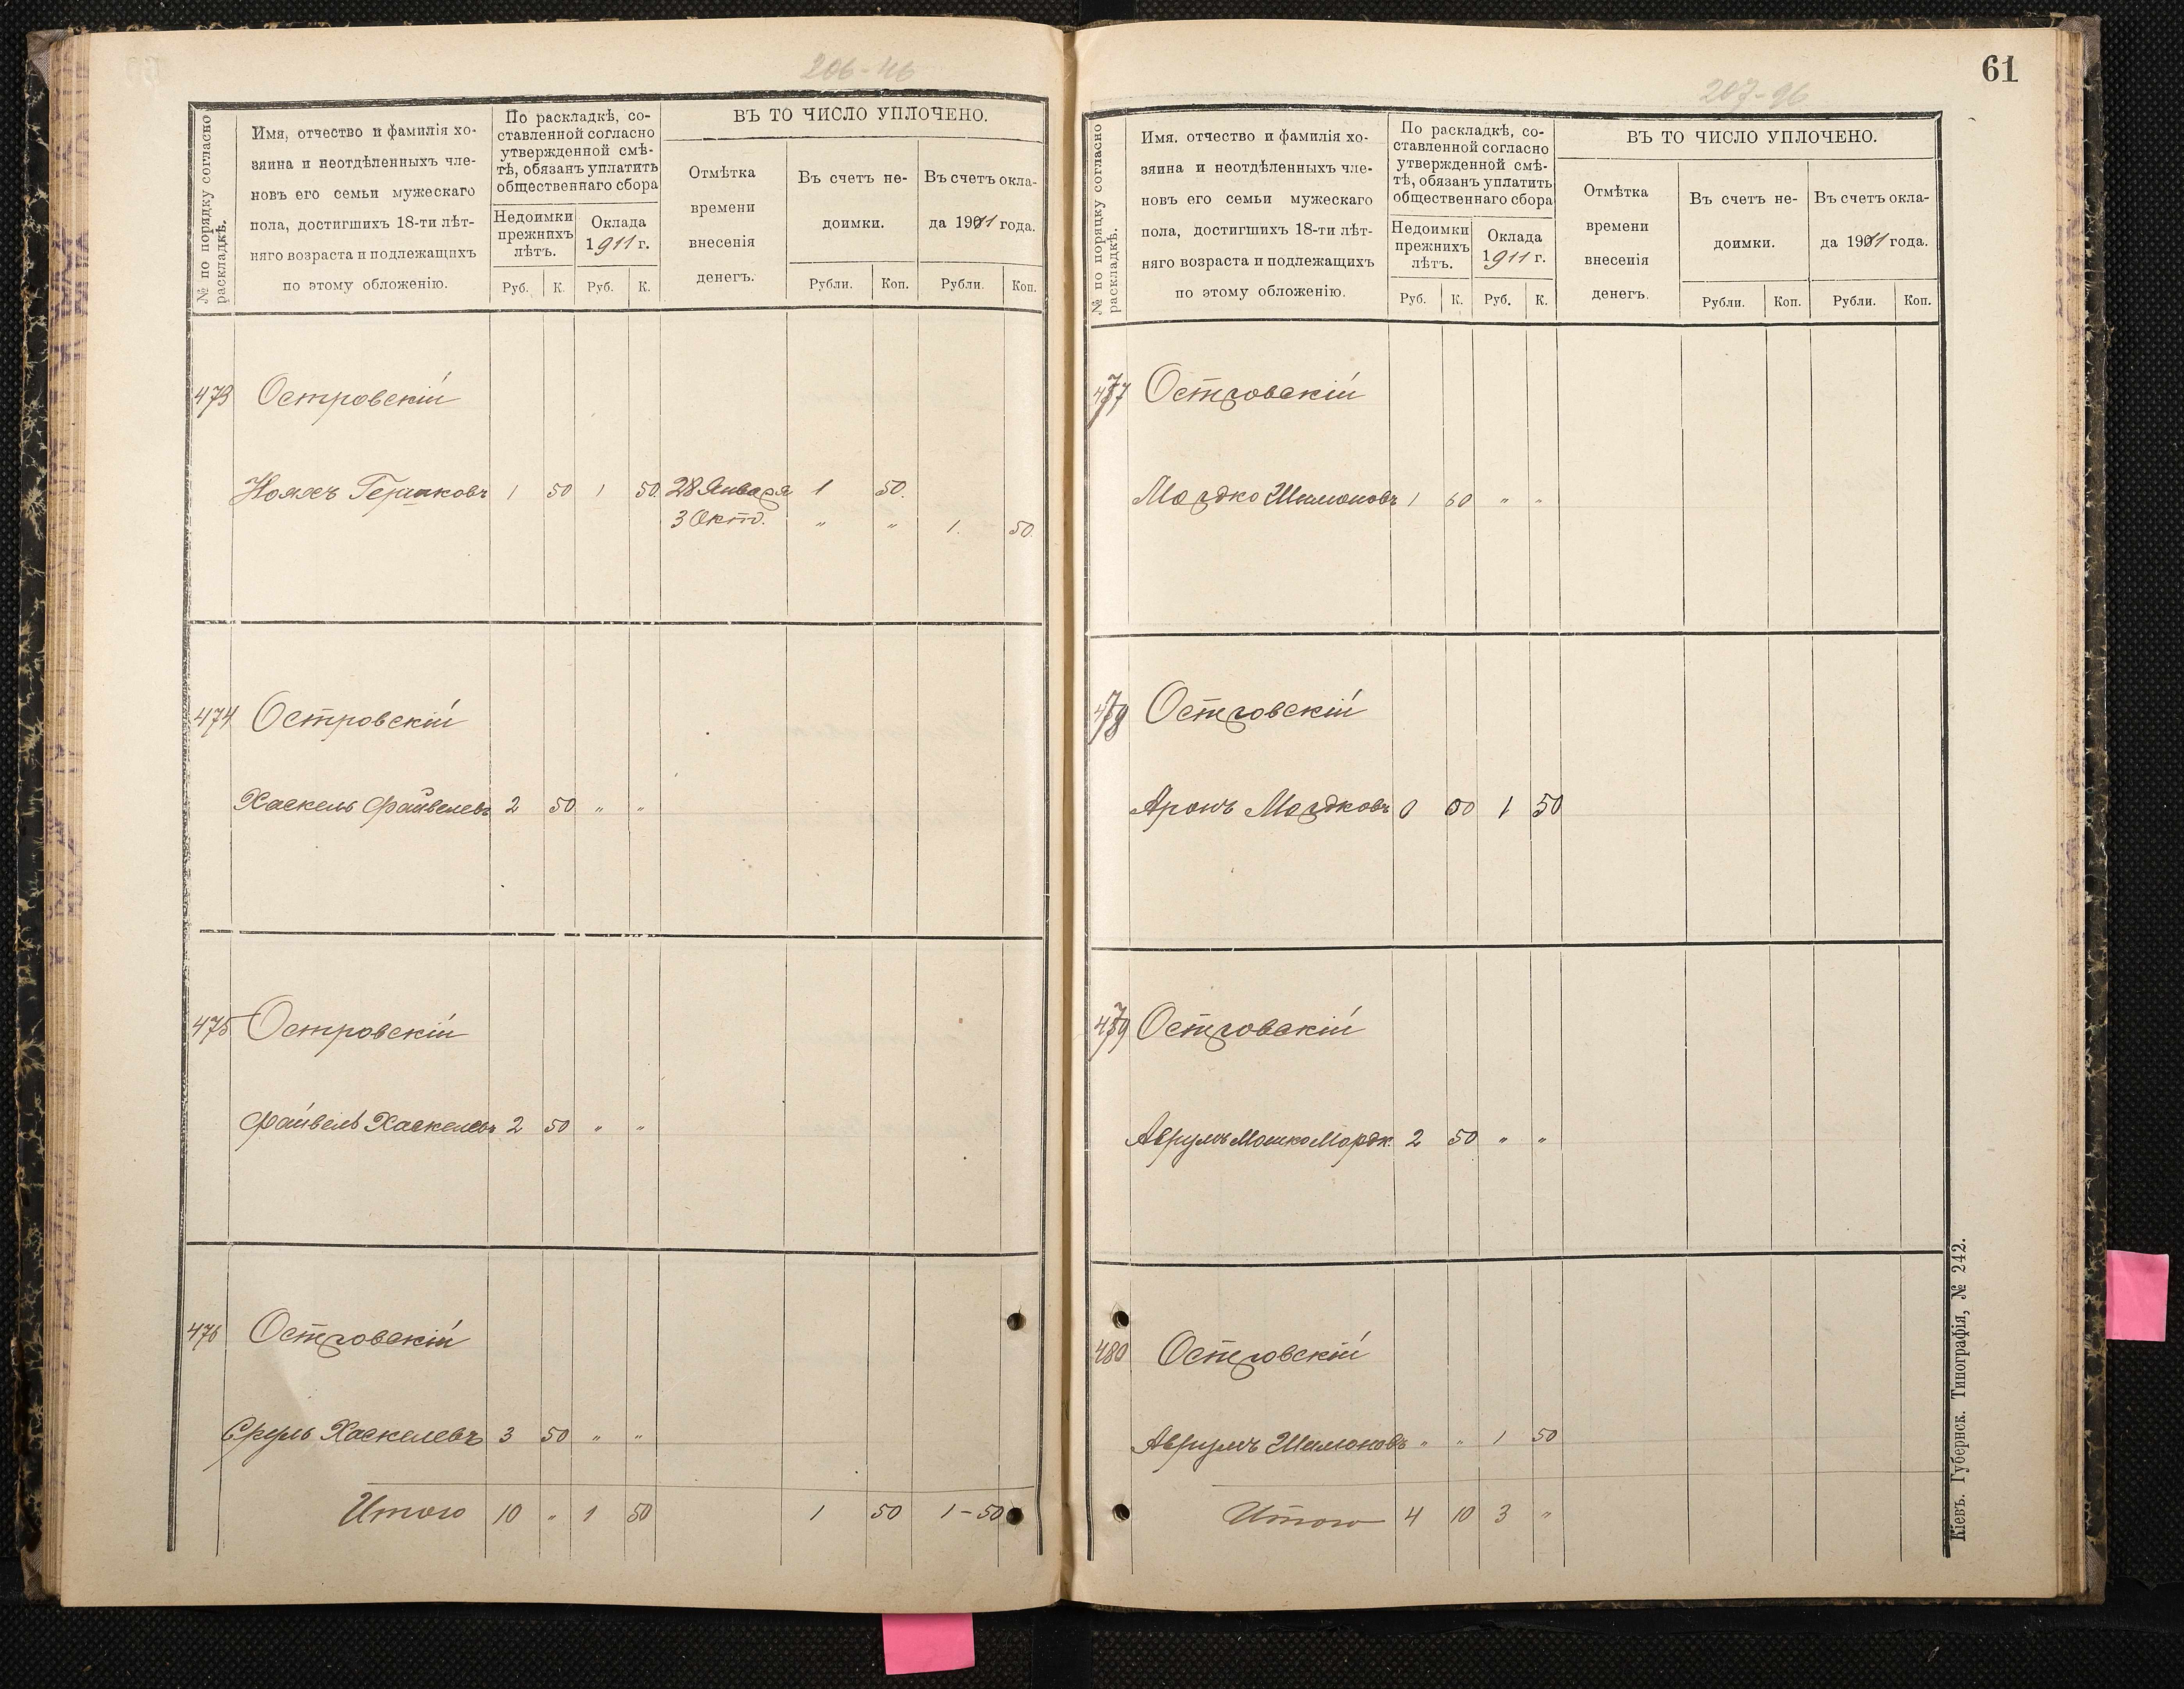 206-46
№ по порядку согласно раскладкѣ.
Имя, отчество и фамилія хо-
зяина и неотдѣленныхъ чле-
новъ его семьи мужескаго
пола, достигшихъ 18-ти лѣт-
няго возраста и подлежащихъ
по этому обложенію.
По раскладкѣ, со-
ставленной согласно
утвержденной смѣ-
тѣ, обязанъ уплатить
общественнаго сбора
Недоимки
прежнихъ
лѣтъ.
Оклада
1911 г.
Руб. К. Руб. К.
ВЪ ТО ЧИСЛО УПЛОЧЕНО.
Отмѣтка
времени
внесенія
денегъ.
Въ счетъ не-
доимки.
Въ счетъ окла-
да 1911 года.
Рубли. Коп. Рубли. Коп.
473 Островскій
Гершковъ 1 50 1 50. 28 Января 1 50.
3 Окт. " " 1. 50.
474 Островскій
Хаскель Файвелевъ 2 50 " "
475 Островскій
Файвель Хаскелевъ 2 50 " "
476 Островскій
Сруль Хаскелевъ 3 50 " "
Итого 10 " 1 50 1 50 1-50
61
207-96
№ по порядку согласно раскладкѣ.
Имя, отчество и фамилія хо-
зяина и неотдѣленныхъ чле-
новъ его семьи мужескаго
пола, достигшихъ 18-ти лѣт-
няго возраста и подлежащихъ
по этому обложенію.
По раскладкѣ, со-
ставленной согласно
утвержденной смѣ-
тѣ, обязанъ уплатить
общественнаго сбора
Недоимки
прежнихъ
лѣтъ.
Оклада
1911 г.
Руб. К. Руб. К.
ВЪ ТО ЧИСЛО УПЛОЧЕНО.
Отмѣтка
времени
внесенія
денегъ.
Въ счетъ не-
доимки.
Въ счетъ окла-
да 1911 года.
Рубли. Коп. Рубли. Коп.
477 Островскій
Мордко Шимоновъ 1 60 " "
Островскій
Аронъ Мордковъ 0 00 1 50
479 Островскій
Аврумъ Мошко Мордк. 2 50 " "
480 Островскій
Аврумъ Шимоновъ " " 1 50
Итого 4 10 3 "
Кіевъ. Губернск. Типографія, № 242.